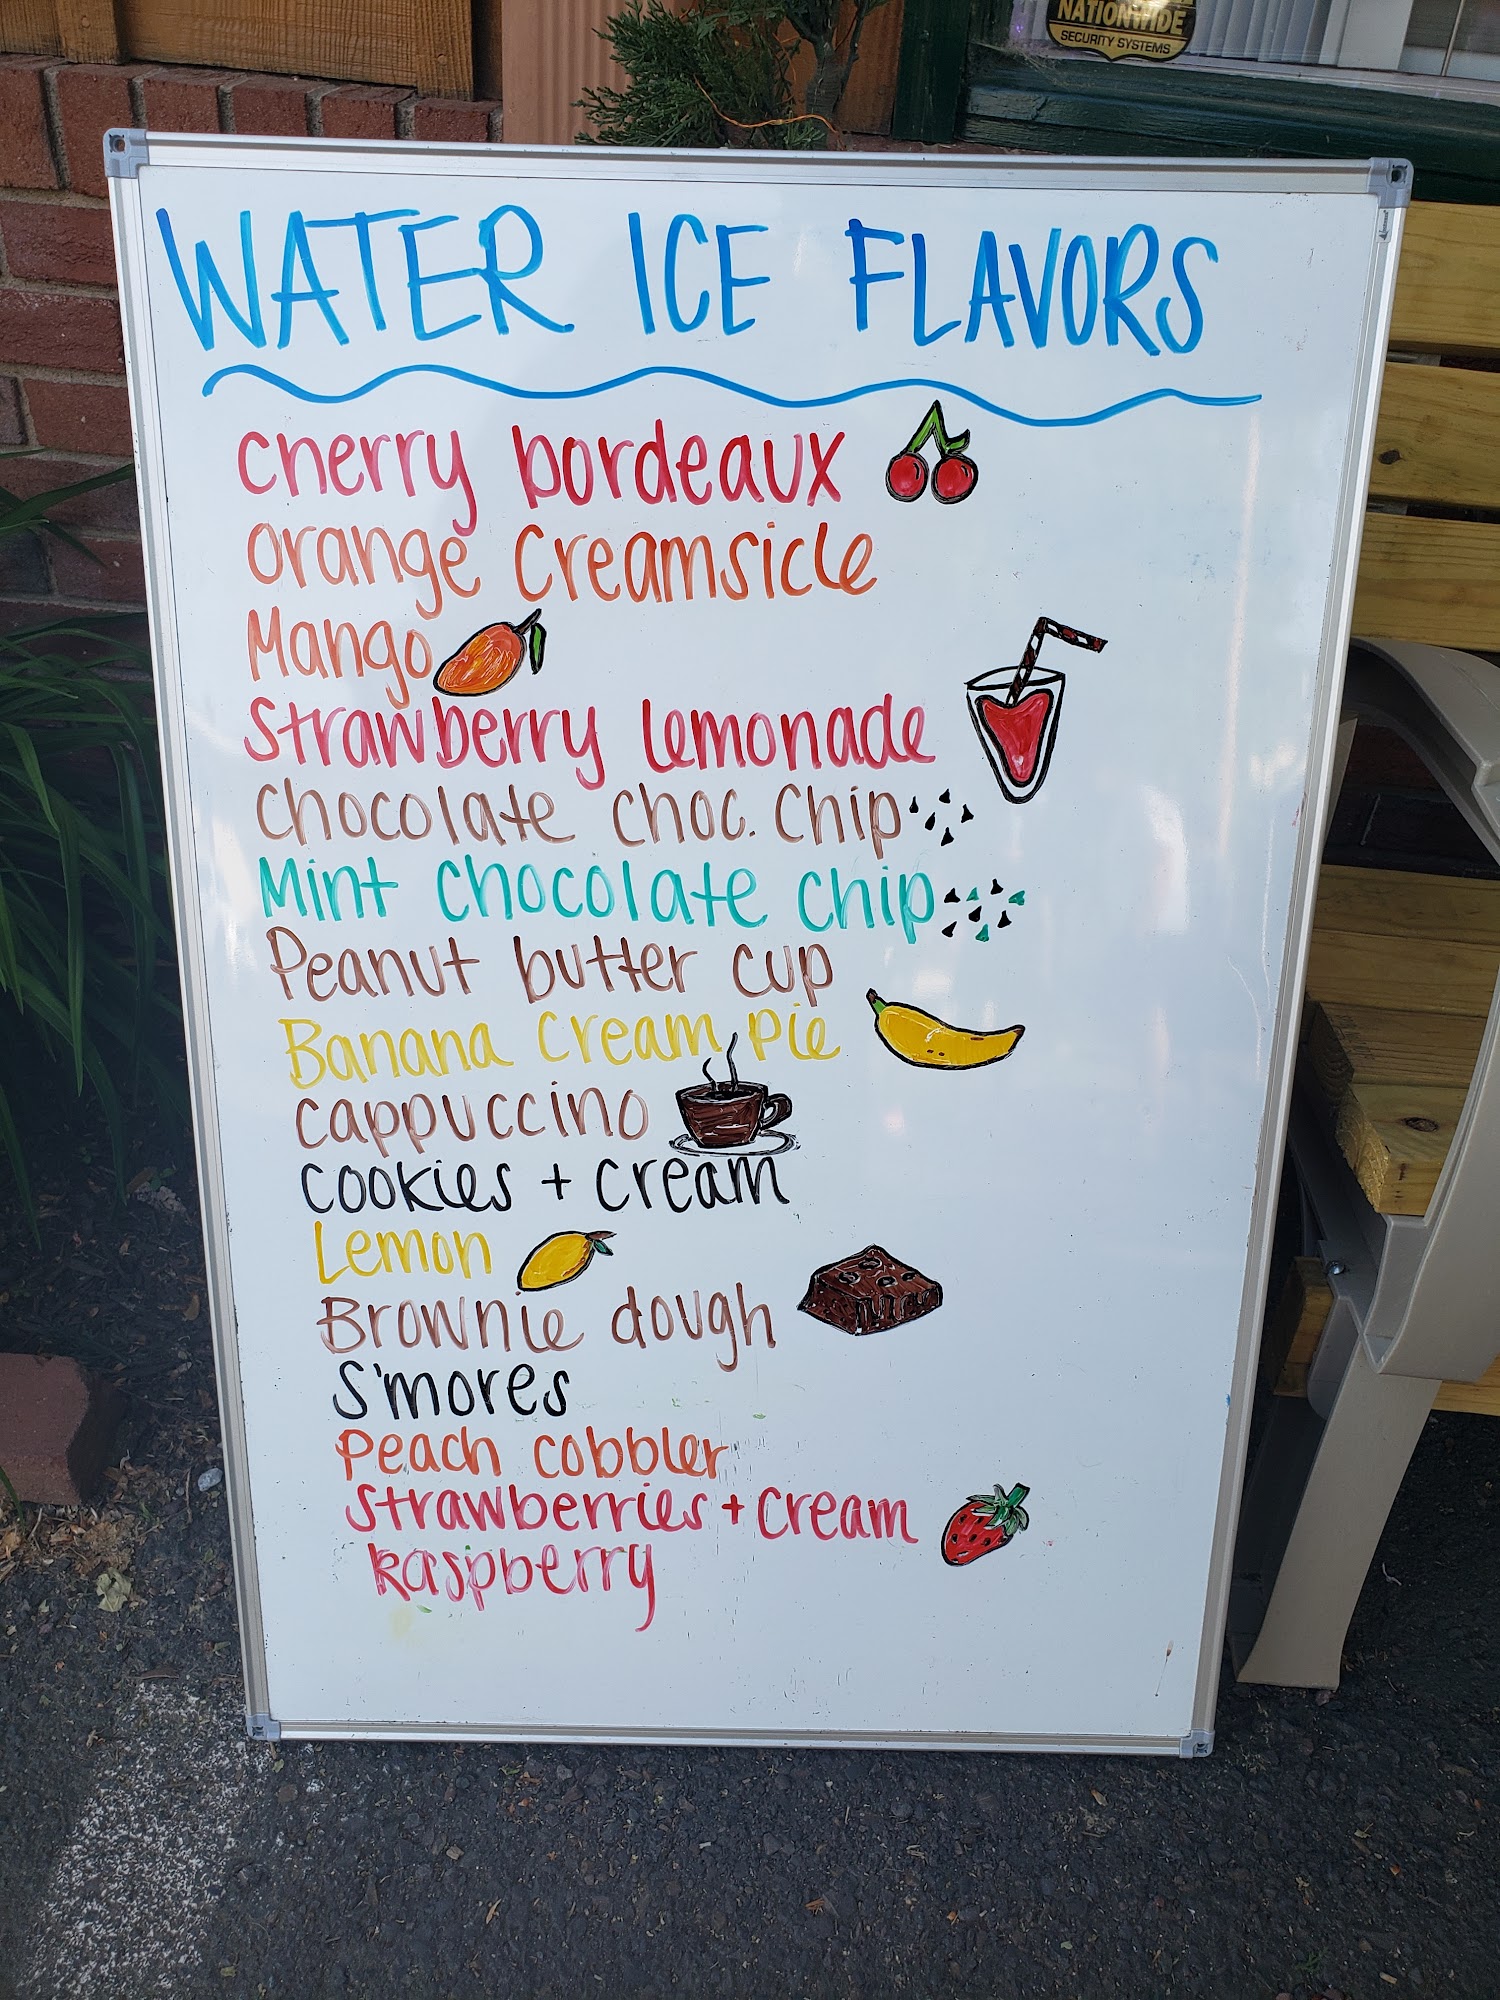 NATIONWIDE
SECURITY SYSTEMS
WATER ICE FLAVORS
cherry bordeaux
orange creamsicle
Mango
Strawberry lemonade
chocolate choc. chip
Mint chocolate chip
Peanut butter cup
Banana cream pie
cappuccino
cookies + cream
Lemon
Brownie dough
S'mores
Peach cobbler
Strawberries + cream
Raspberry